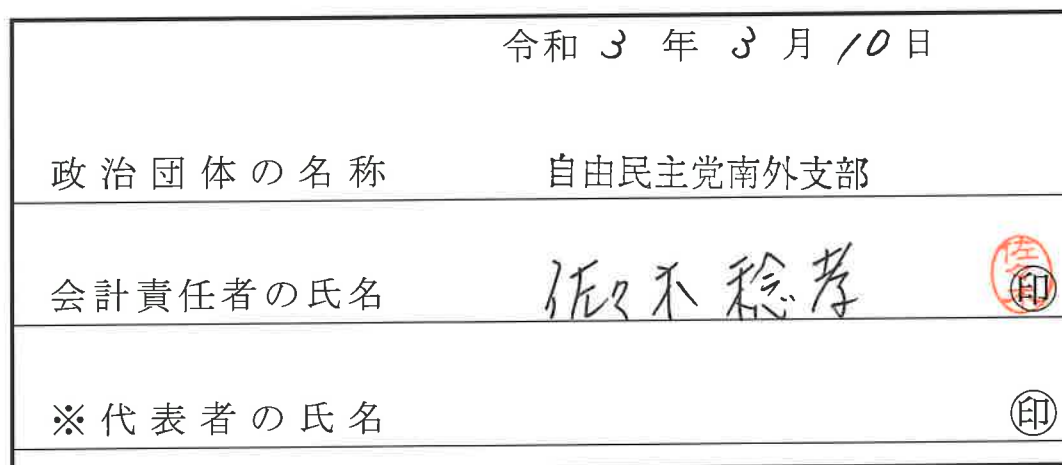 令和 3 年 3 月 10 日
政治団体の名称 自由民主党南外支部
会計責任者の氏名 佐々木 稔孝 佐々木 印
※代表者の氏名 印